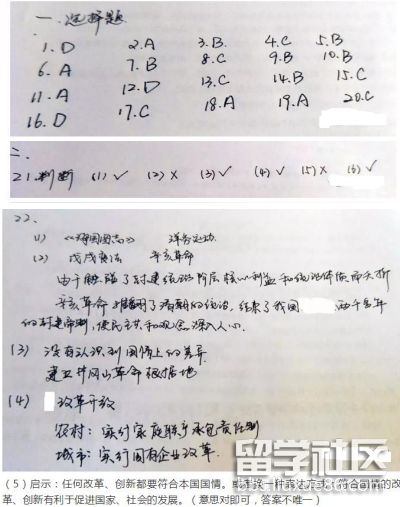 一.选择题
1.D 2.A 3.B 4.C 5.B
6.A 7.B 8.C 9.B 10.B
11.A 12.D 13.C 14.B 15.C
16.D 17.C 18.A 19.A 20.C
二.
21.判断 (1)√ (2)× (3)√ (4)√ (5)× (6)√
22.
(1) 《海国图志》 洋务运动
(2) 戊戌变法 辛亥革命
由于触碰了封建统治阶层核心利益和统治体
辛亥革命推翻了清朝的统治,结束了我国 两千多年
的封建帝制,使民主共和观念深入人心.
(3) 没有认识到国情上的差异
建立井冈山革命根据地
(4) 改革开放
农村:实行家庭联产承包责任制
城市:实行国有企业改革.
留学社区
liuxue86.com
(5)启示:任何改革、创新都要符合本国国情。或者换一种表达方式:符合国情的改
革、创新有利于促进国家、社会的发展。(意思对即可,答案不唯一)